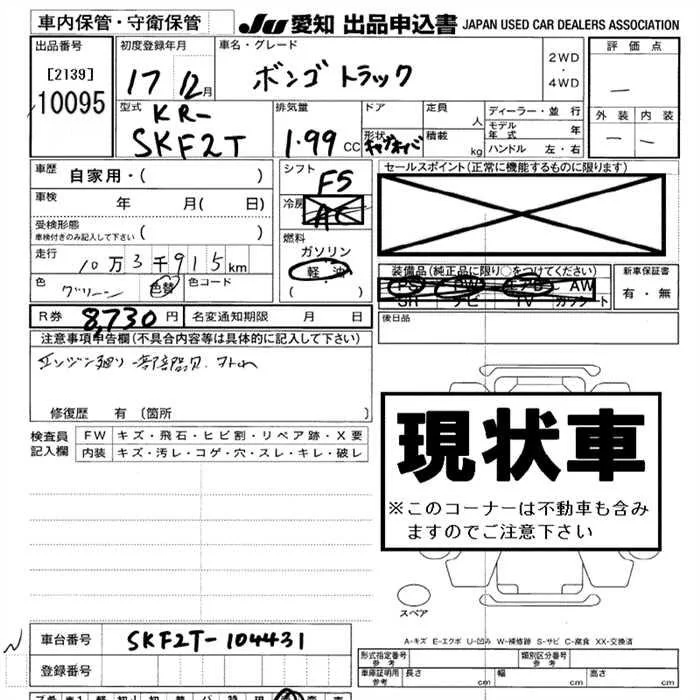 車内保管・守衛保管
JU 愛知 出品申込書 JAPAN USED CAR DEALERS ASSOCIATION
出品番号 初度登録年月 車名・グレード 評価点
[2139] 17 12月 ボンゴトラック 2WD・4WD
10095
型式 排気量 ドア 定員 人 ディーラー・並行 外装 内装
KR-
SKF2T 1.99 CC 形状 積載 kg モデル年式 年
ハンドル 左・右
車歴 自家用・( ) シフト F5 セールスポイント(正常に機能するものに限ります)
車検 年 月( 日) 冷房 AC
受検形態
車検付きのみ記入して下さい ( ) 燃料
ガソリン
走行 10万3千915km 軽油 装備品(純正品に限り○をつけてください) 新車保証書
色 グリーン 色替 色コード ( ) PS PW エアB AW 有・無
SR ナビ TV カセット
R券 8,730円 名変通知期限 月 日 後日品
注意事項申告欄(不具合内容等は具体的に記入して下さい)
エンジン廻り一部部品
修復歴 有 〔箇所 〕
検査員 FW キズ・飛石・ヒビ割・リペア跡・X要
記入欄 内装 キズ・汚レ・コゲ・穴・スレ・キレ・破レ
現状車
※このコーナーは不動車も含み
ますのでご注意下さい
スペア
A-キズ E-エクボ U-凹み W-補修跡 S-サビ C-腐食 XX-交換済
車台番号 SKF2T-104431
登録番号
形式指定番号 参考 類別区分番号 参考
車庫証明用 参考 長さ cm 幅 cm 高さ cm